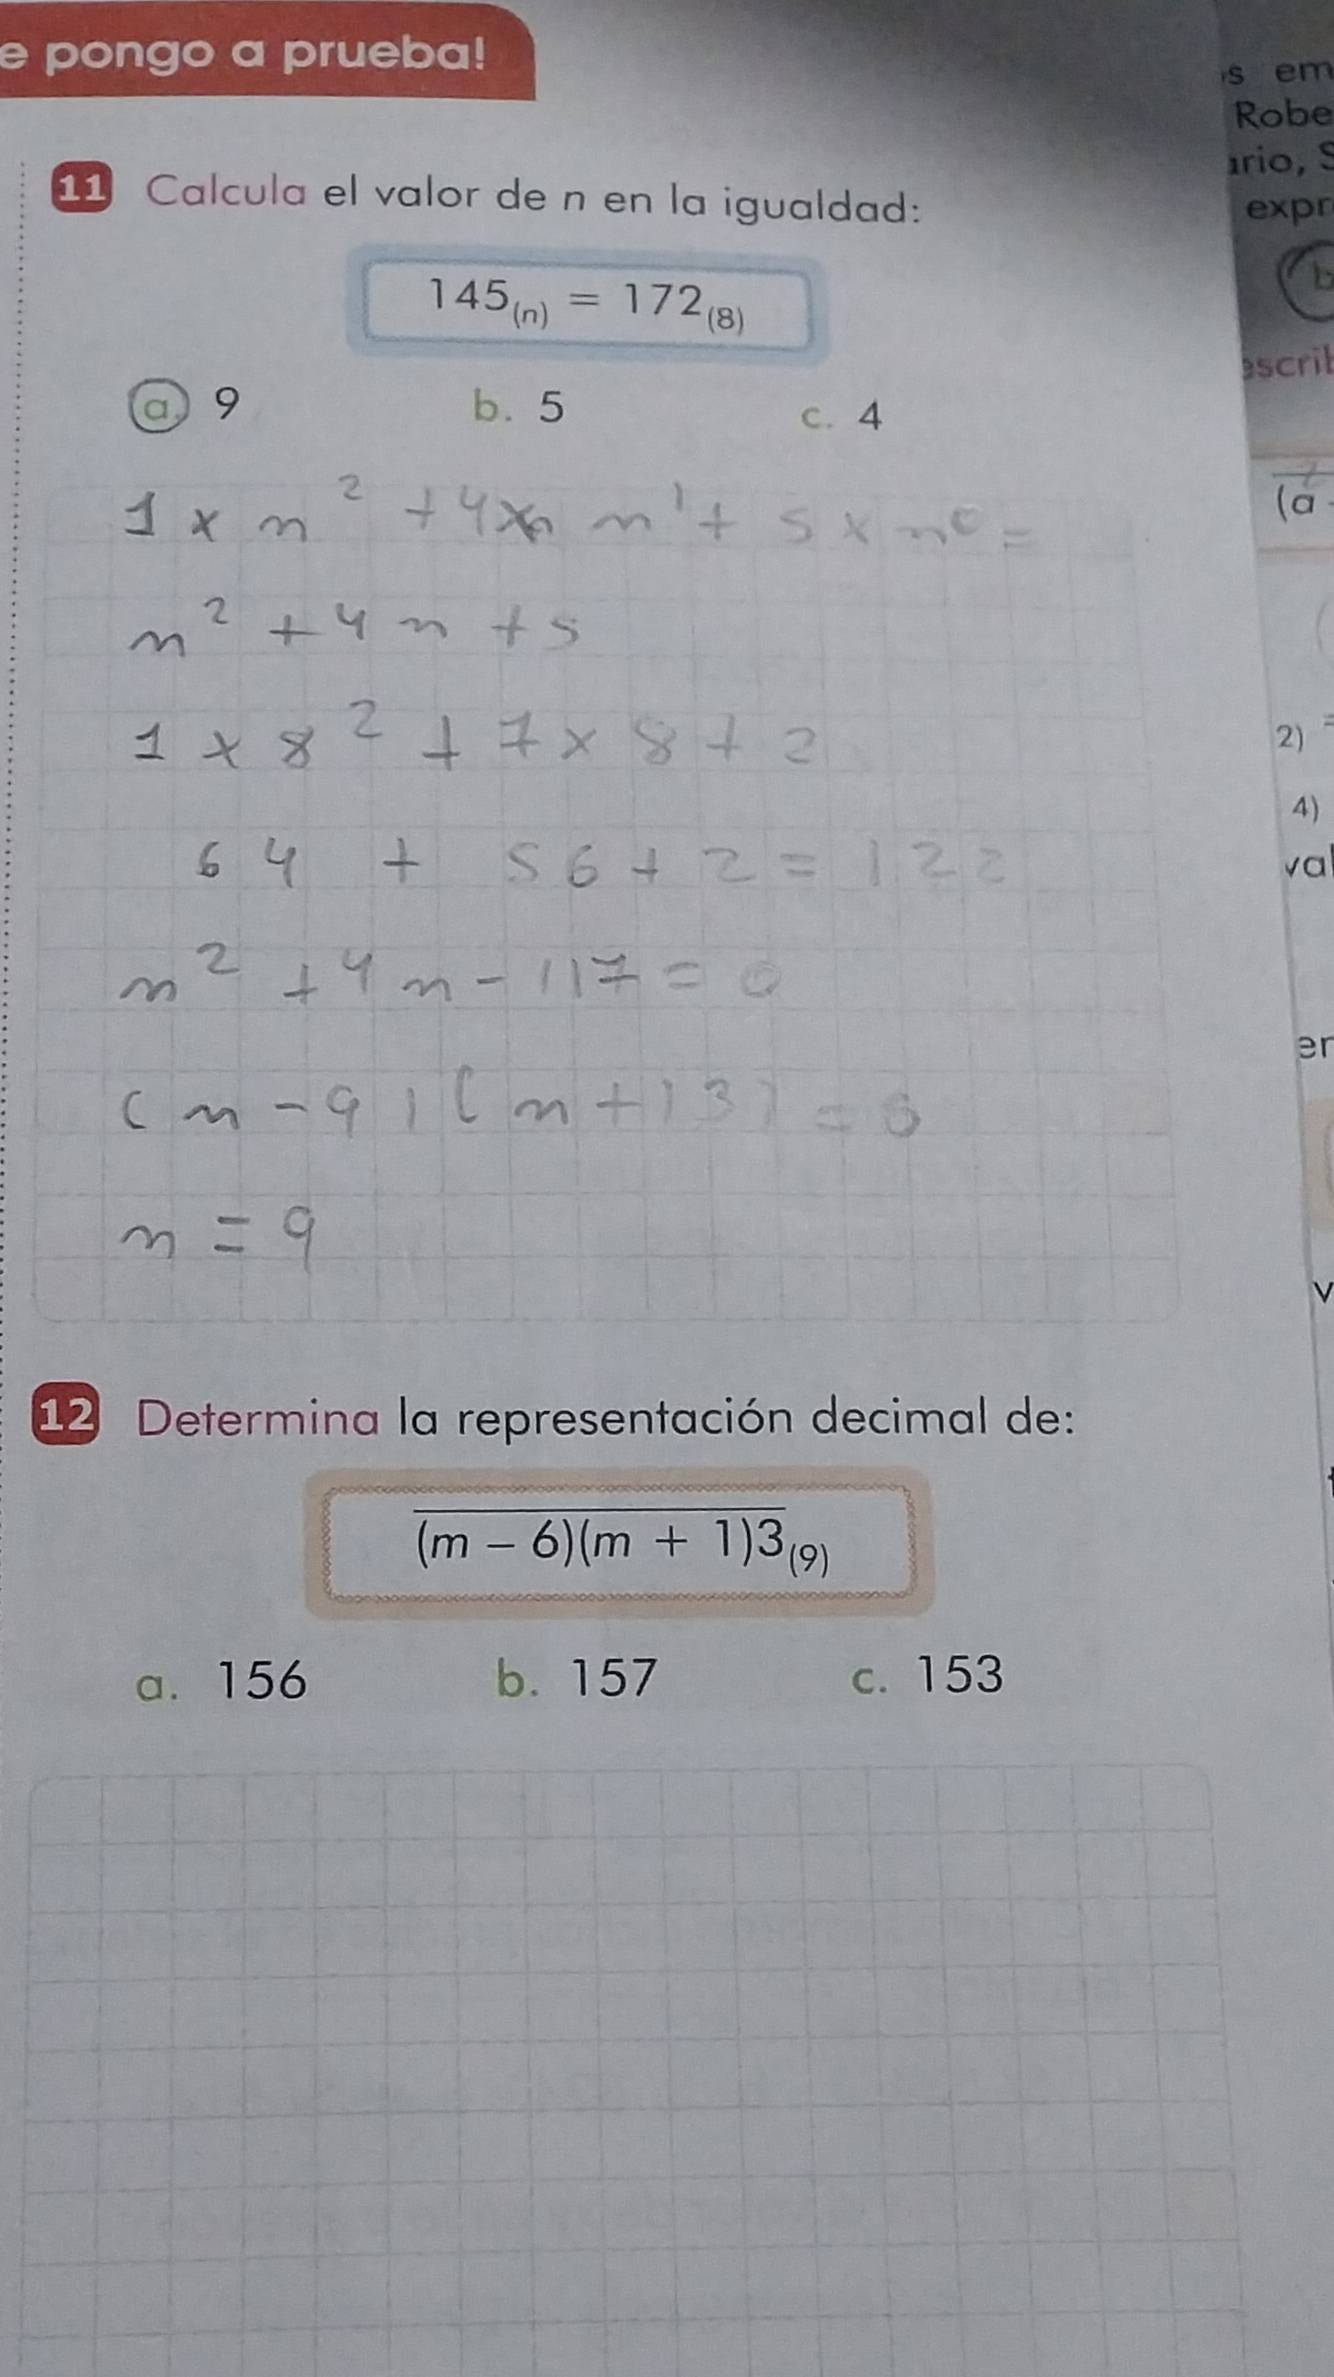 e pongo a prueba!
11 Calcula el valor de n en la igualdad:
145(n) = 172(8)
a. 9 b. 5 c. 4
1 x n² + 4x n¹ + 5 x n⁰ =
n² + 4n + 5
1 x 8² + 7 x 8 + 2
64 + 56 + 2 = 122
n² + 4n - 117 = 0
(n - 9)(n + 13) = 0
n = 9
12 Determina la representación decimal de:
(m – 6)(m + 1)3(9)
a. 156 b. 157 c. 153
s em
Robe
ario, S
expr
b
escrib
(a
2) =
4)
val
er
v